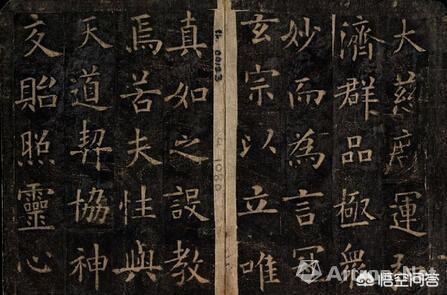 大慈廣運弘
濟群品極眾
妙而為言冠
玄宗以立唯
真如之設教
焉若夫性與
天道契協神
交貽照靈心
Artron.Net
悟空问答